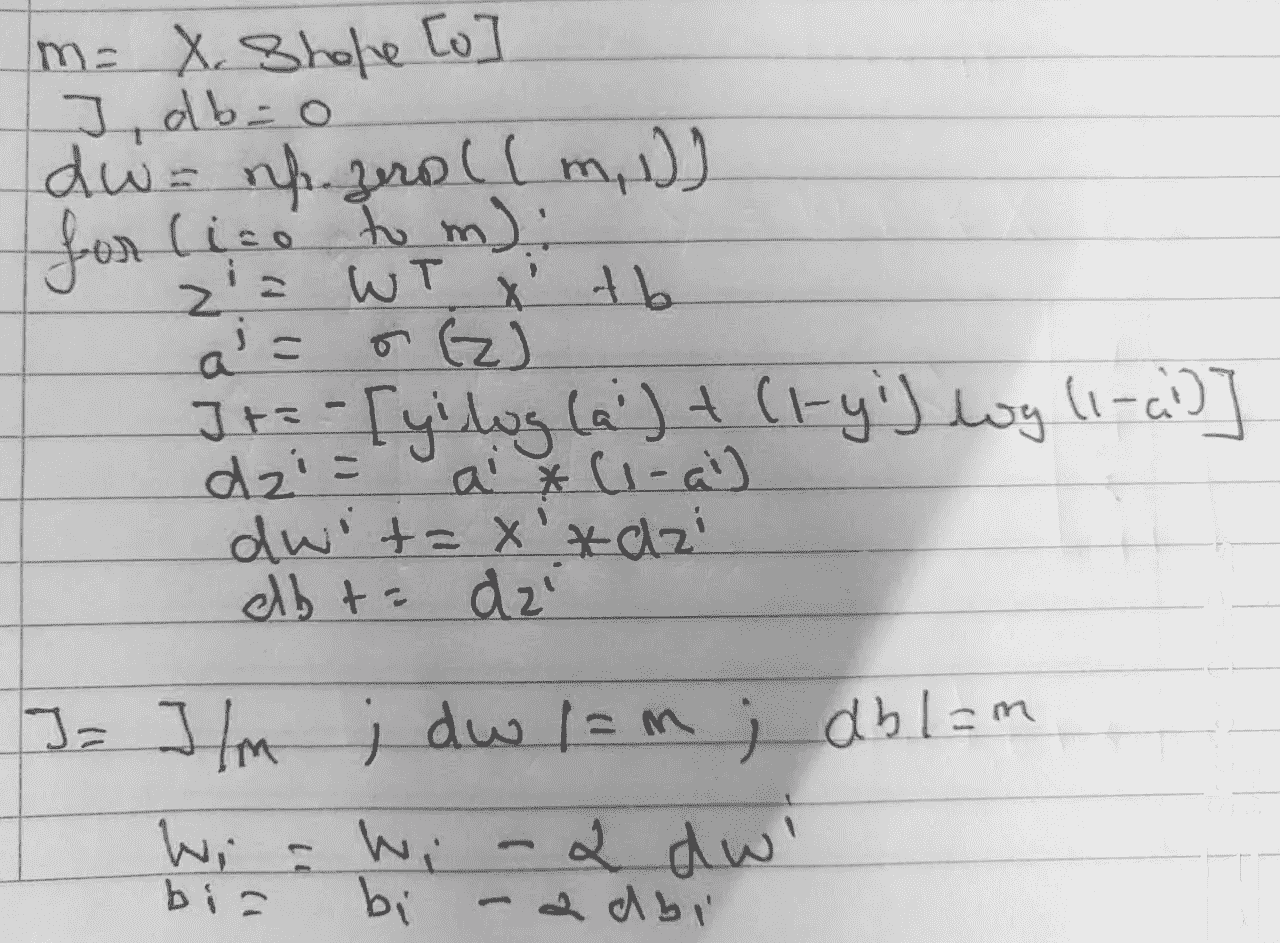 m= X. Shape [0]
J, db=0
dw= np. zero(( m,1))
for (i=0 to m):
zⁱ= WT xⁱ +b
aⁱ = σ (z)
J+= -[yⁱlog(aⁱ) + (1-yⁱ) log (1-aⁱ)]
dzⁱ= aⁱ * (1-aⁱ)
dwⁱ += xⁱ *dzⁱ
db += dzⁱ
J= J/m ; dw /= m ; db/=m
Wi = Wi - α dwⁱ
bi= bi - α dbi